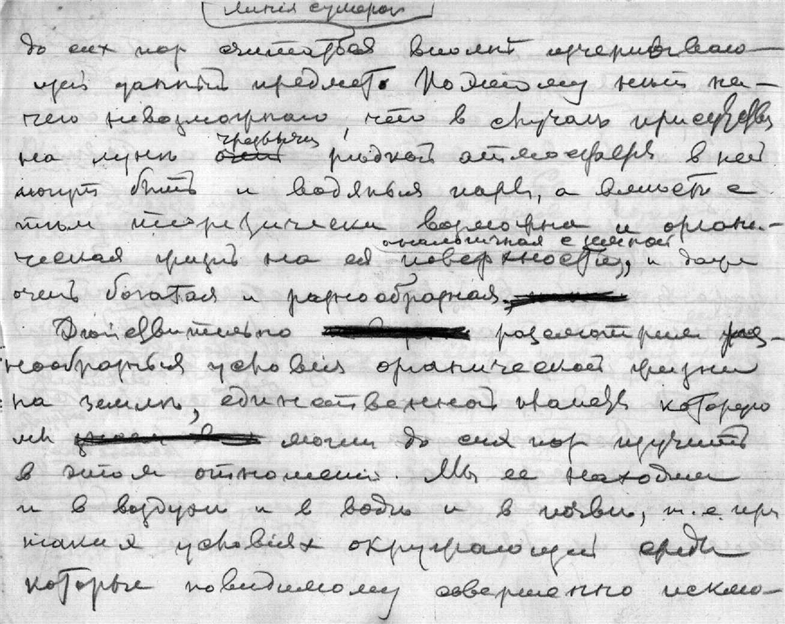 линія сумерок
до сих пор считаться вполнѣ исчерпываю-
щей данный предмет. Поэтому нѣт ни-
чего невозможнаго, что в случаѣ присутствія
на лунѣ чрезвычайно рѣдкой атмосферы в ней
могут быть и водяные пары, а вмѣстѣ с
тѣм теоретически возможна и органи-
ческая жизнь на ея поверхности, и даже
аналогичная с земной
очень богатая и разнообразная.
Дѣйствительно разсмотрим раз-
нообразныя условія органической жизни
на землѣ, единственной планеты которую
мы могли до сих пор изучить
в этом отношении. Мы ее находим
и в воздухѣ и в водѣ и в почвѣ, т.е. при
таких условіях окружающей среды
которые повидимому совершенно исклю-